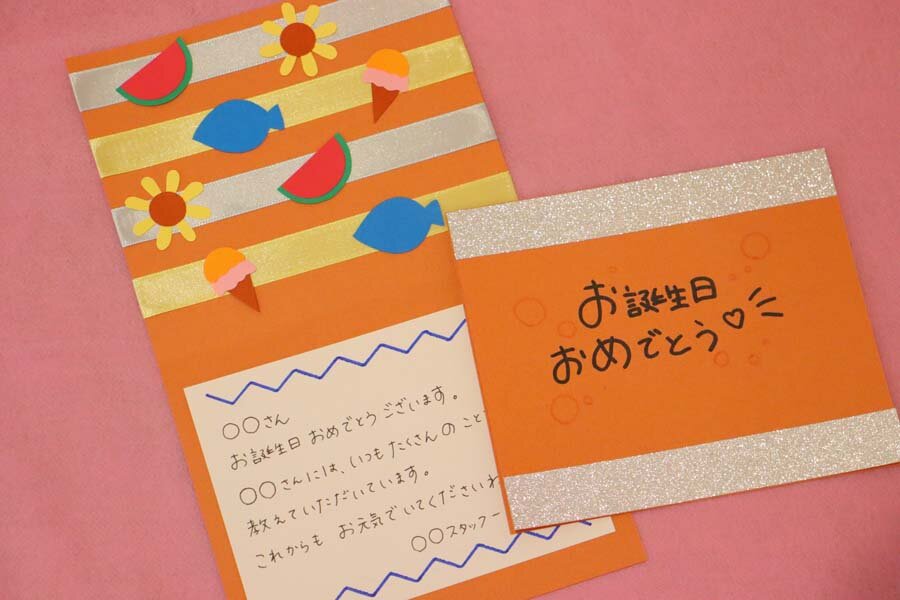 お誕生日
おめでとう♡
〇〇さん
お誕生日 おめでとうございます。
〇〇さんには、いつもたくさんのこと
教えていただいています。
これからも お元気でいてくださいね
〇〇スタッフ一